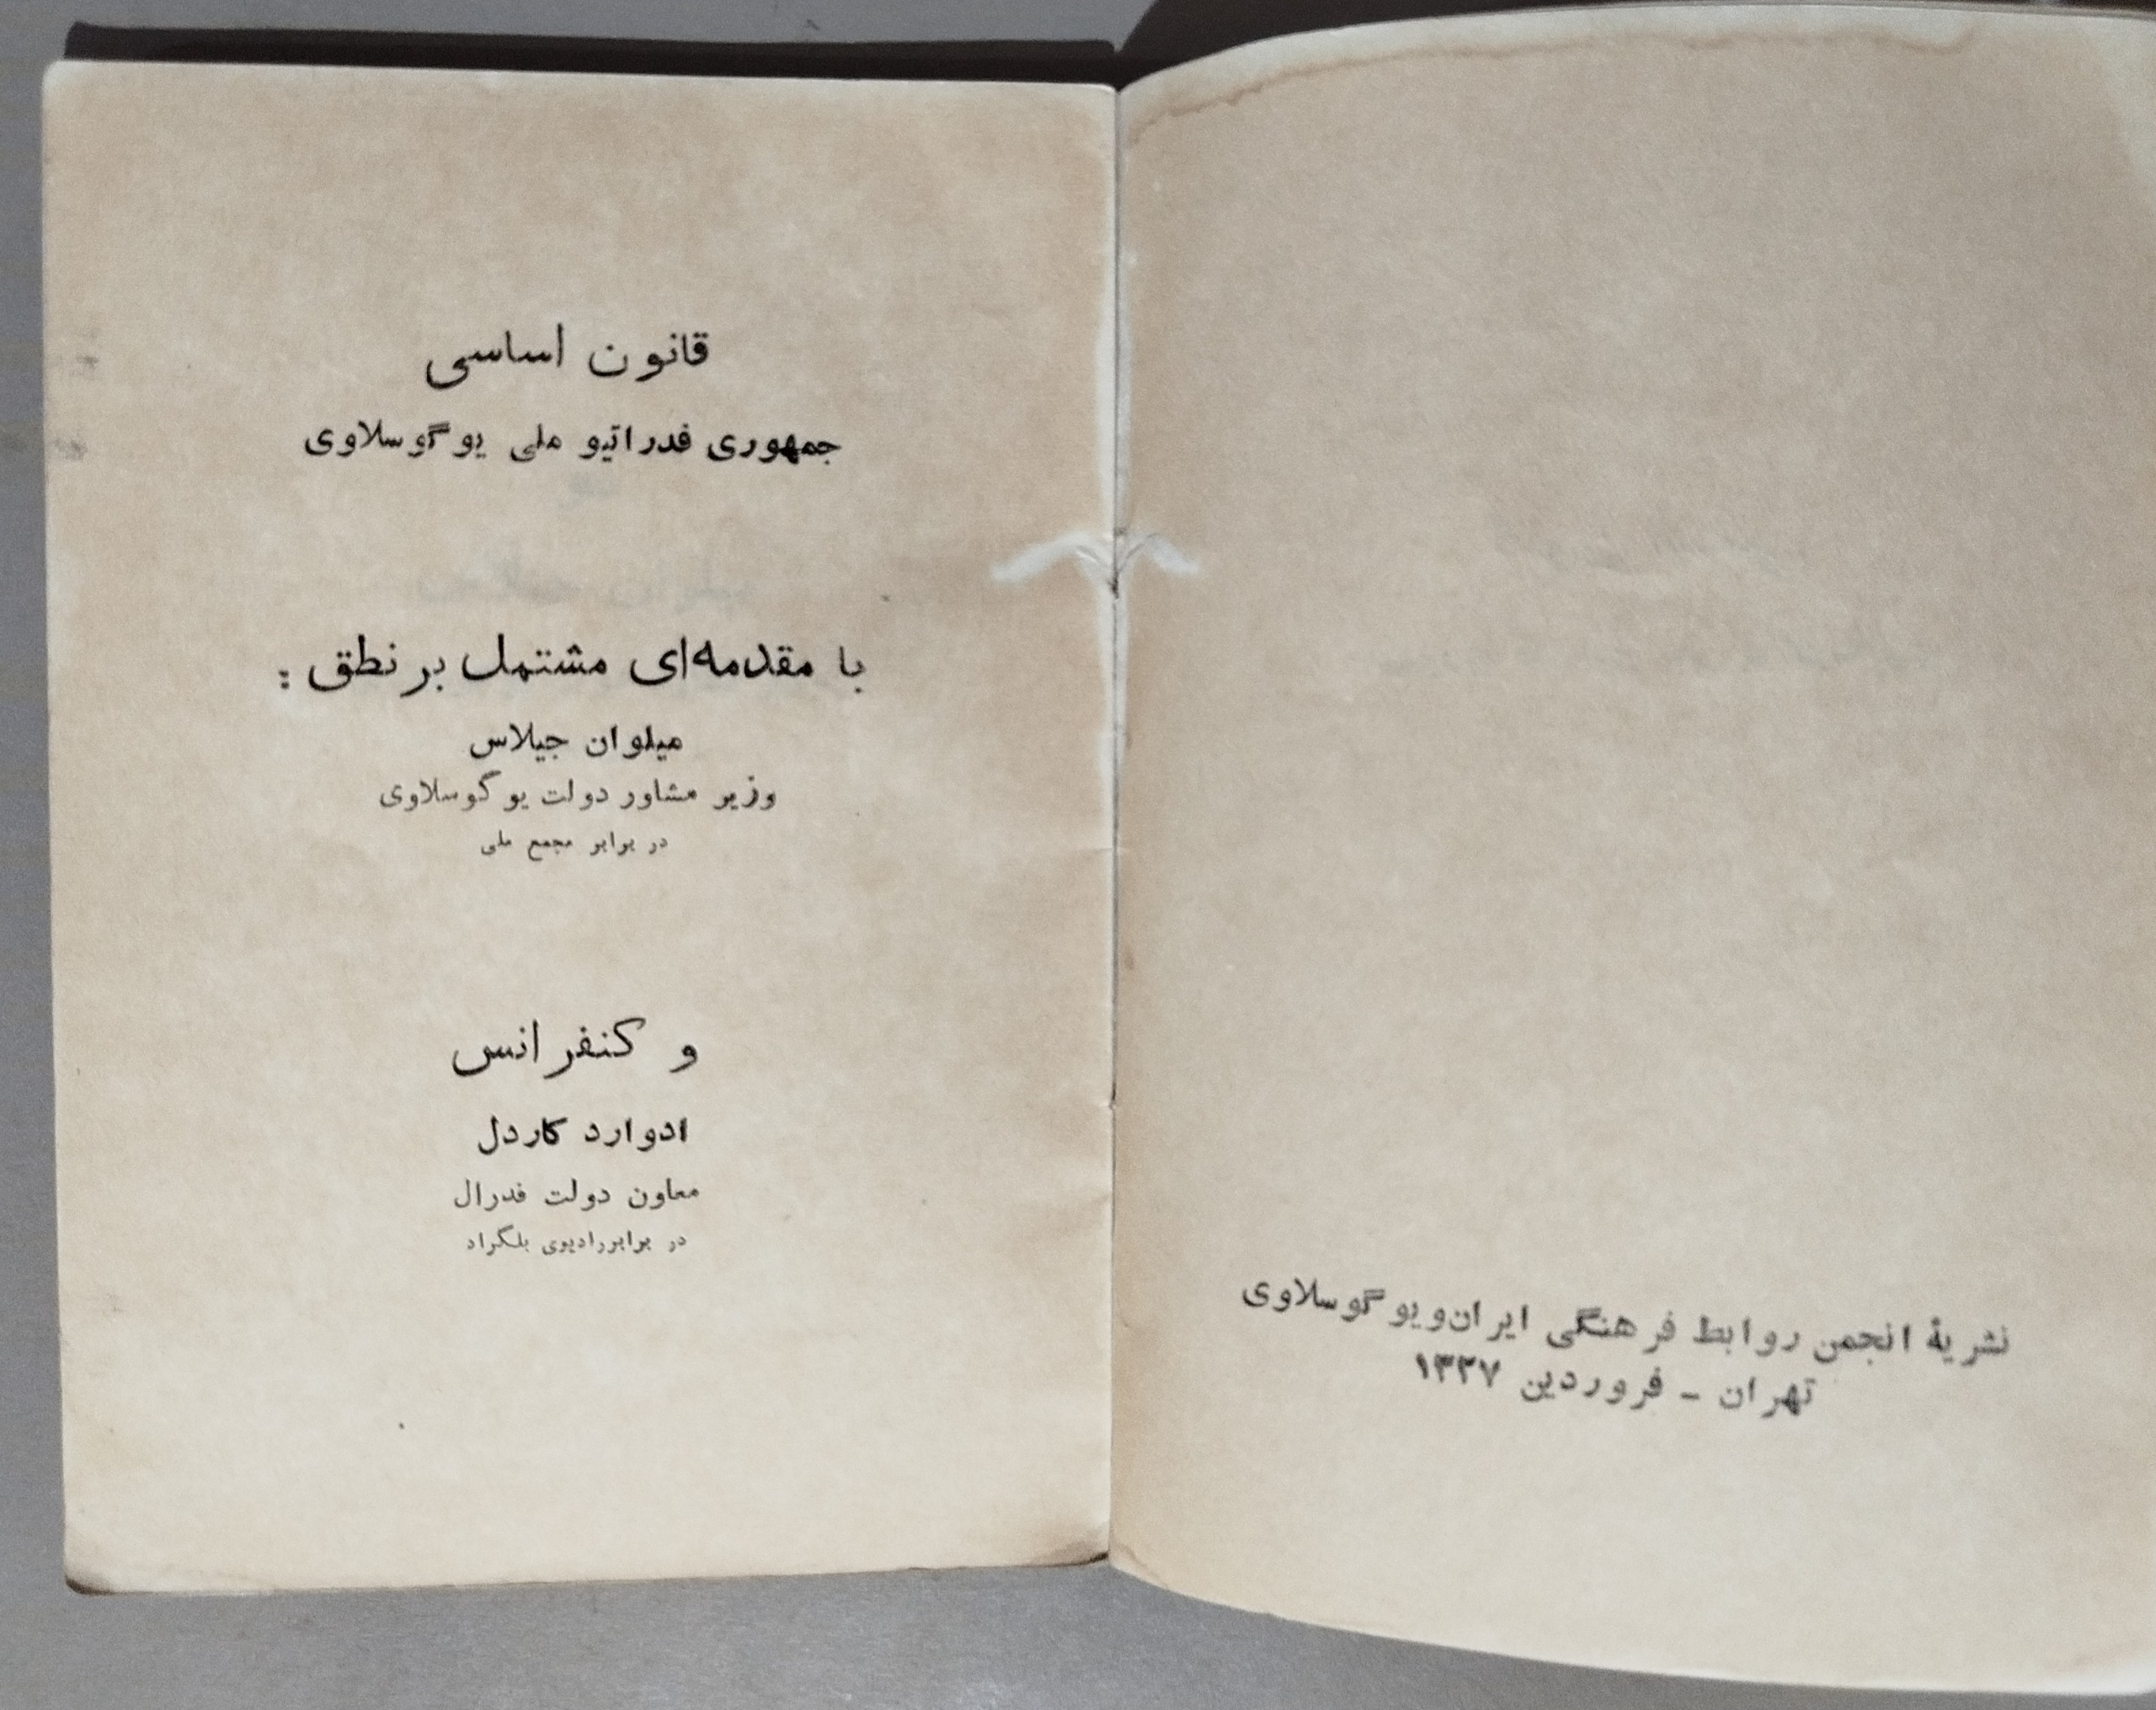 نشریهٔ انجمن روابط فرهنگی ایران و یوگوسلاوی
تهران - فروردین ۱۳۲۷
قانون اساسی
جمهوری فدراتیو ملی یوگوسلاوی
با مقدمه‌ای مشتمل بر نطق :
میلوان جیلاس
وزیر مشاور دولت یوگوسلاوی
در برابر مجمع ملی
و کنفرانس
ادوارد کاردل
معاون دولت فدرال
در برابر رادیوی بلگراد